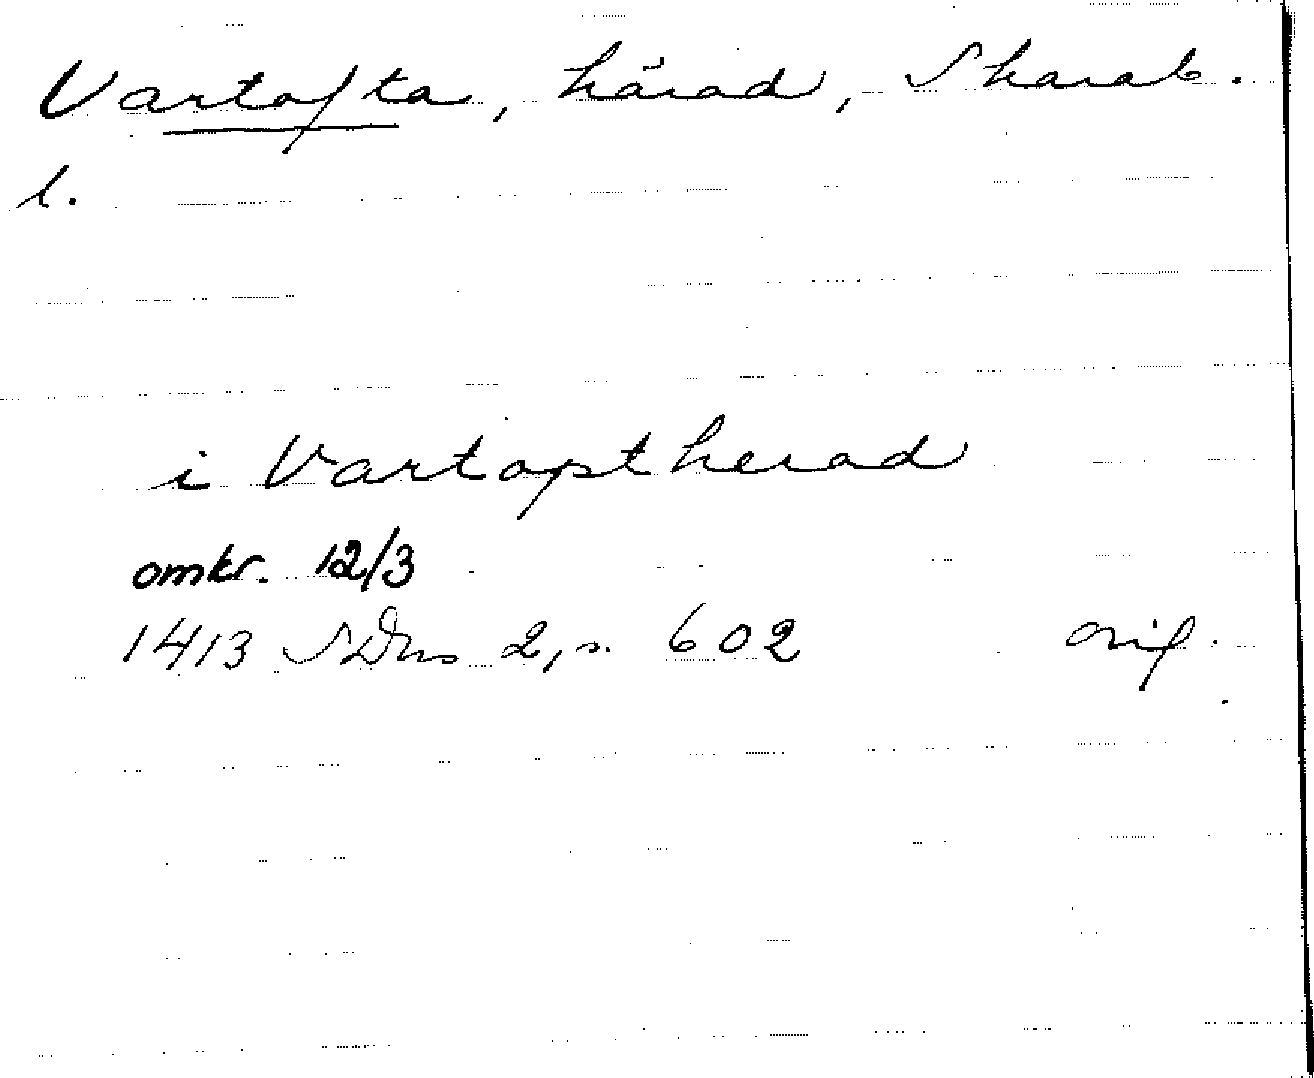 Vartofta, härad, Skarab.
l.
i Vartoptherad
omkr. 12/3
1413 SDns 2, s. 602 orig.